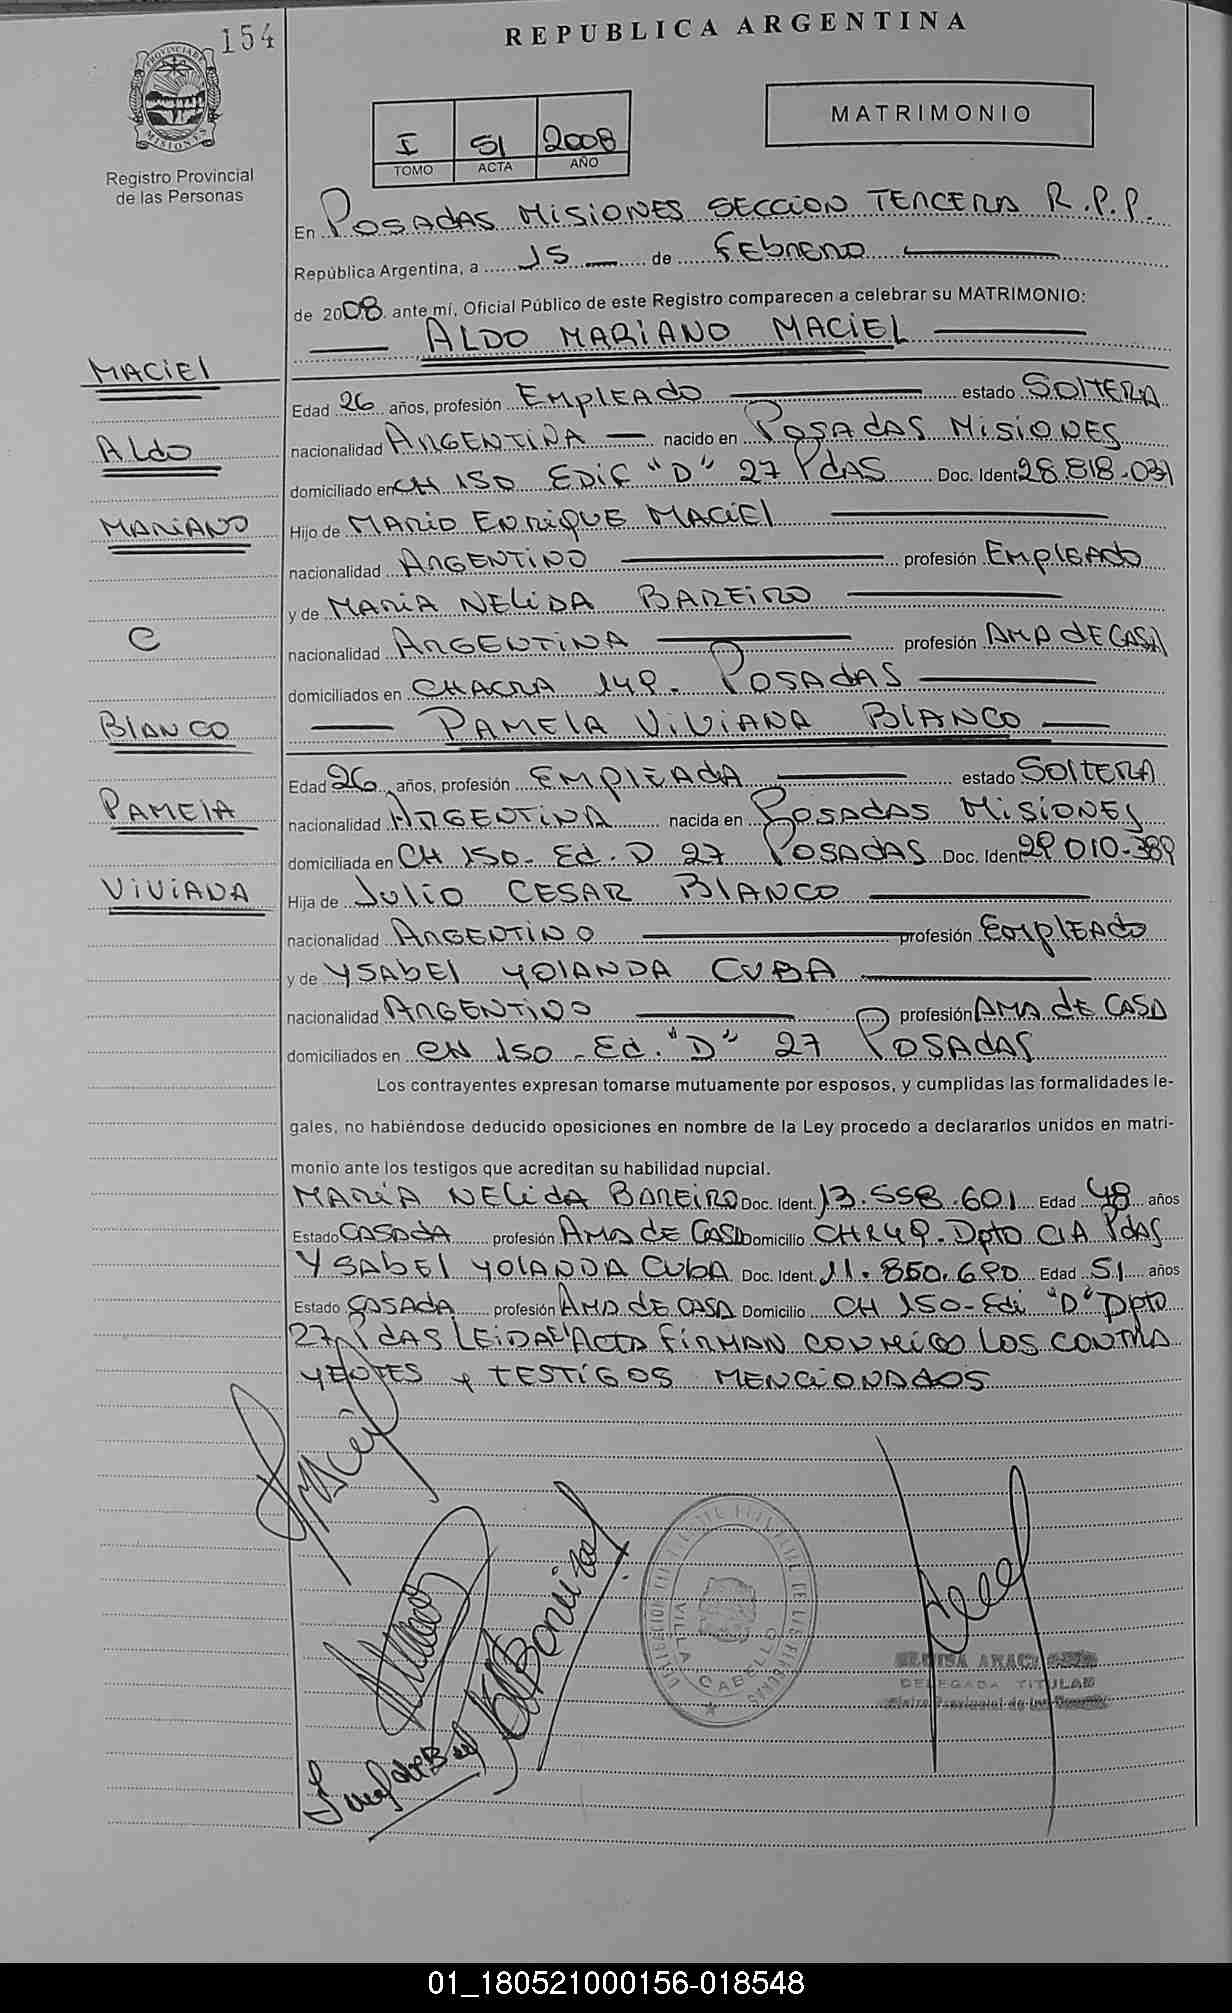 154
REPUBLICA ARGENTINA
PROVINCIA DE
MISIONES
Registro Provincial
de las Personas
MATRIMONIO
I 51 2008
TOMO ACTA AÑO
En POSADAS MISIONES SECCION TERCERA R.P.P.
República Argentina, a 15 de FEbRERO
de 2008 ante mí, Oficial Público de este Registro comparecen a celebrar su MATRIMONIO:
ALDO MARIANO MACIEL
MACIEL
Edad 26 años, profesión EMPLEADO estado SOLTERA
Aldo
nacionalidad ARGENTINA nacido en POSADAS MISIONES
domiciliado en CH 150 EDIF "D" 27 PdAS Doc. Ident 28.818.031
MARIANO
Hijo de MARIO ENRIQUE MACIEL
nacionalidad ARGENTINO profesión EMPLEADO
y de MARIA NELIDA BAREIRO
C
nacionalidad ARGENTINA profesión AMA dE CASA
domiciliados en CHACRA 149. POSADAS
BLANCO
PAMELA VIVIANA BLANCO
Edad 26 años, profesión EMPLEADA estado SOLTERA
PAMELA
nacionalidad ARGENTINA nacida en POSADAS MISIONES
domiciliada en CH 150- Ed. D 27 POSADAS Doc. Ident 29.010.389
VIVIANA
Hija de JULIO CESAR BLANCO
nacionalidad ARGENTINO profesión EMPLEADO
y de YSABEL YOLANDA CUBA
nacionalidad ARGENTINO profesión AMA dE CASA
domiciliados en CH 150 - Ed. "D" 27 POSADAS
Los contrayentes expresan tomarse mutuamente por esposos, y cumplidas las formalidades le-
gales, no habiéndose deducido oposiciones en nombre de la Ley procedo a declararlos unidos en matri-
monio ante los testigos que acreditan su habilidad nupcial.
MARIA NELIDA BAREIRO Doc. Ident. 13.558.601 Edad 48 años
Estado CASADA profesión AMA DE CASA Domicilio CH 149. Dpto C/A PdAS
YSABEL YOLANDA CUBA Doc. Ident. 11.850.690 Edad 51 años
Estado CASADA profesión AMA dE CASA Domicilio CH 150-Edi "D" Dpto
27 PdAS LEIDA EL ACTA FIRMAN CONMIGO LOS CONTRA
YENTES y TESTIGOS MENCIONADOS
Maciel
VILLA CABELLO
DELEGADA TITULAR
01_180521000156-018548